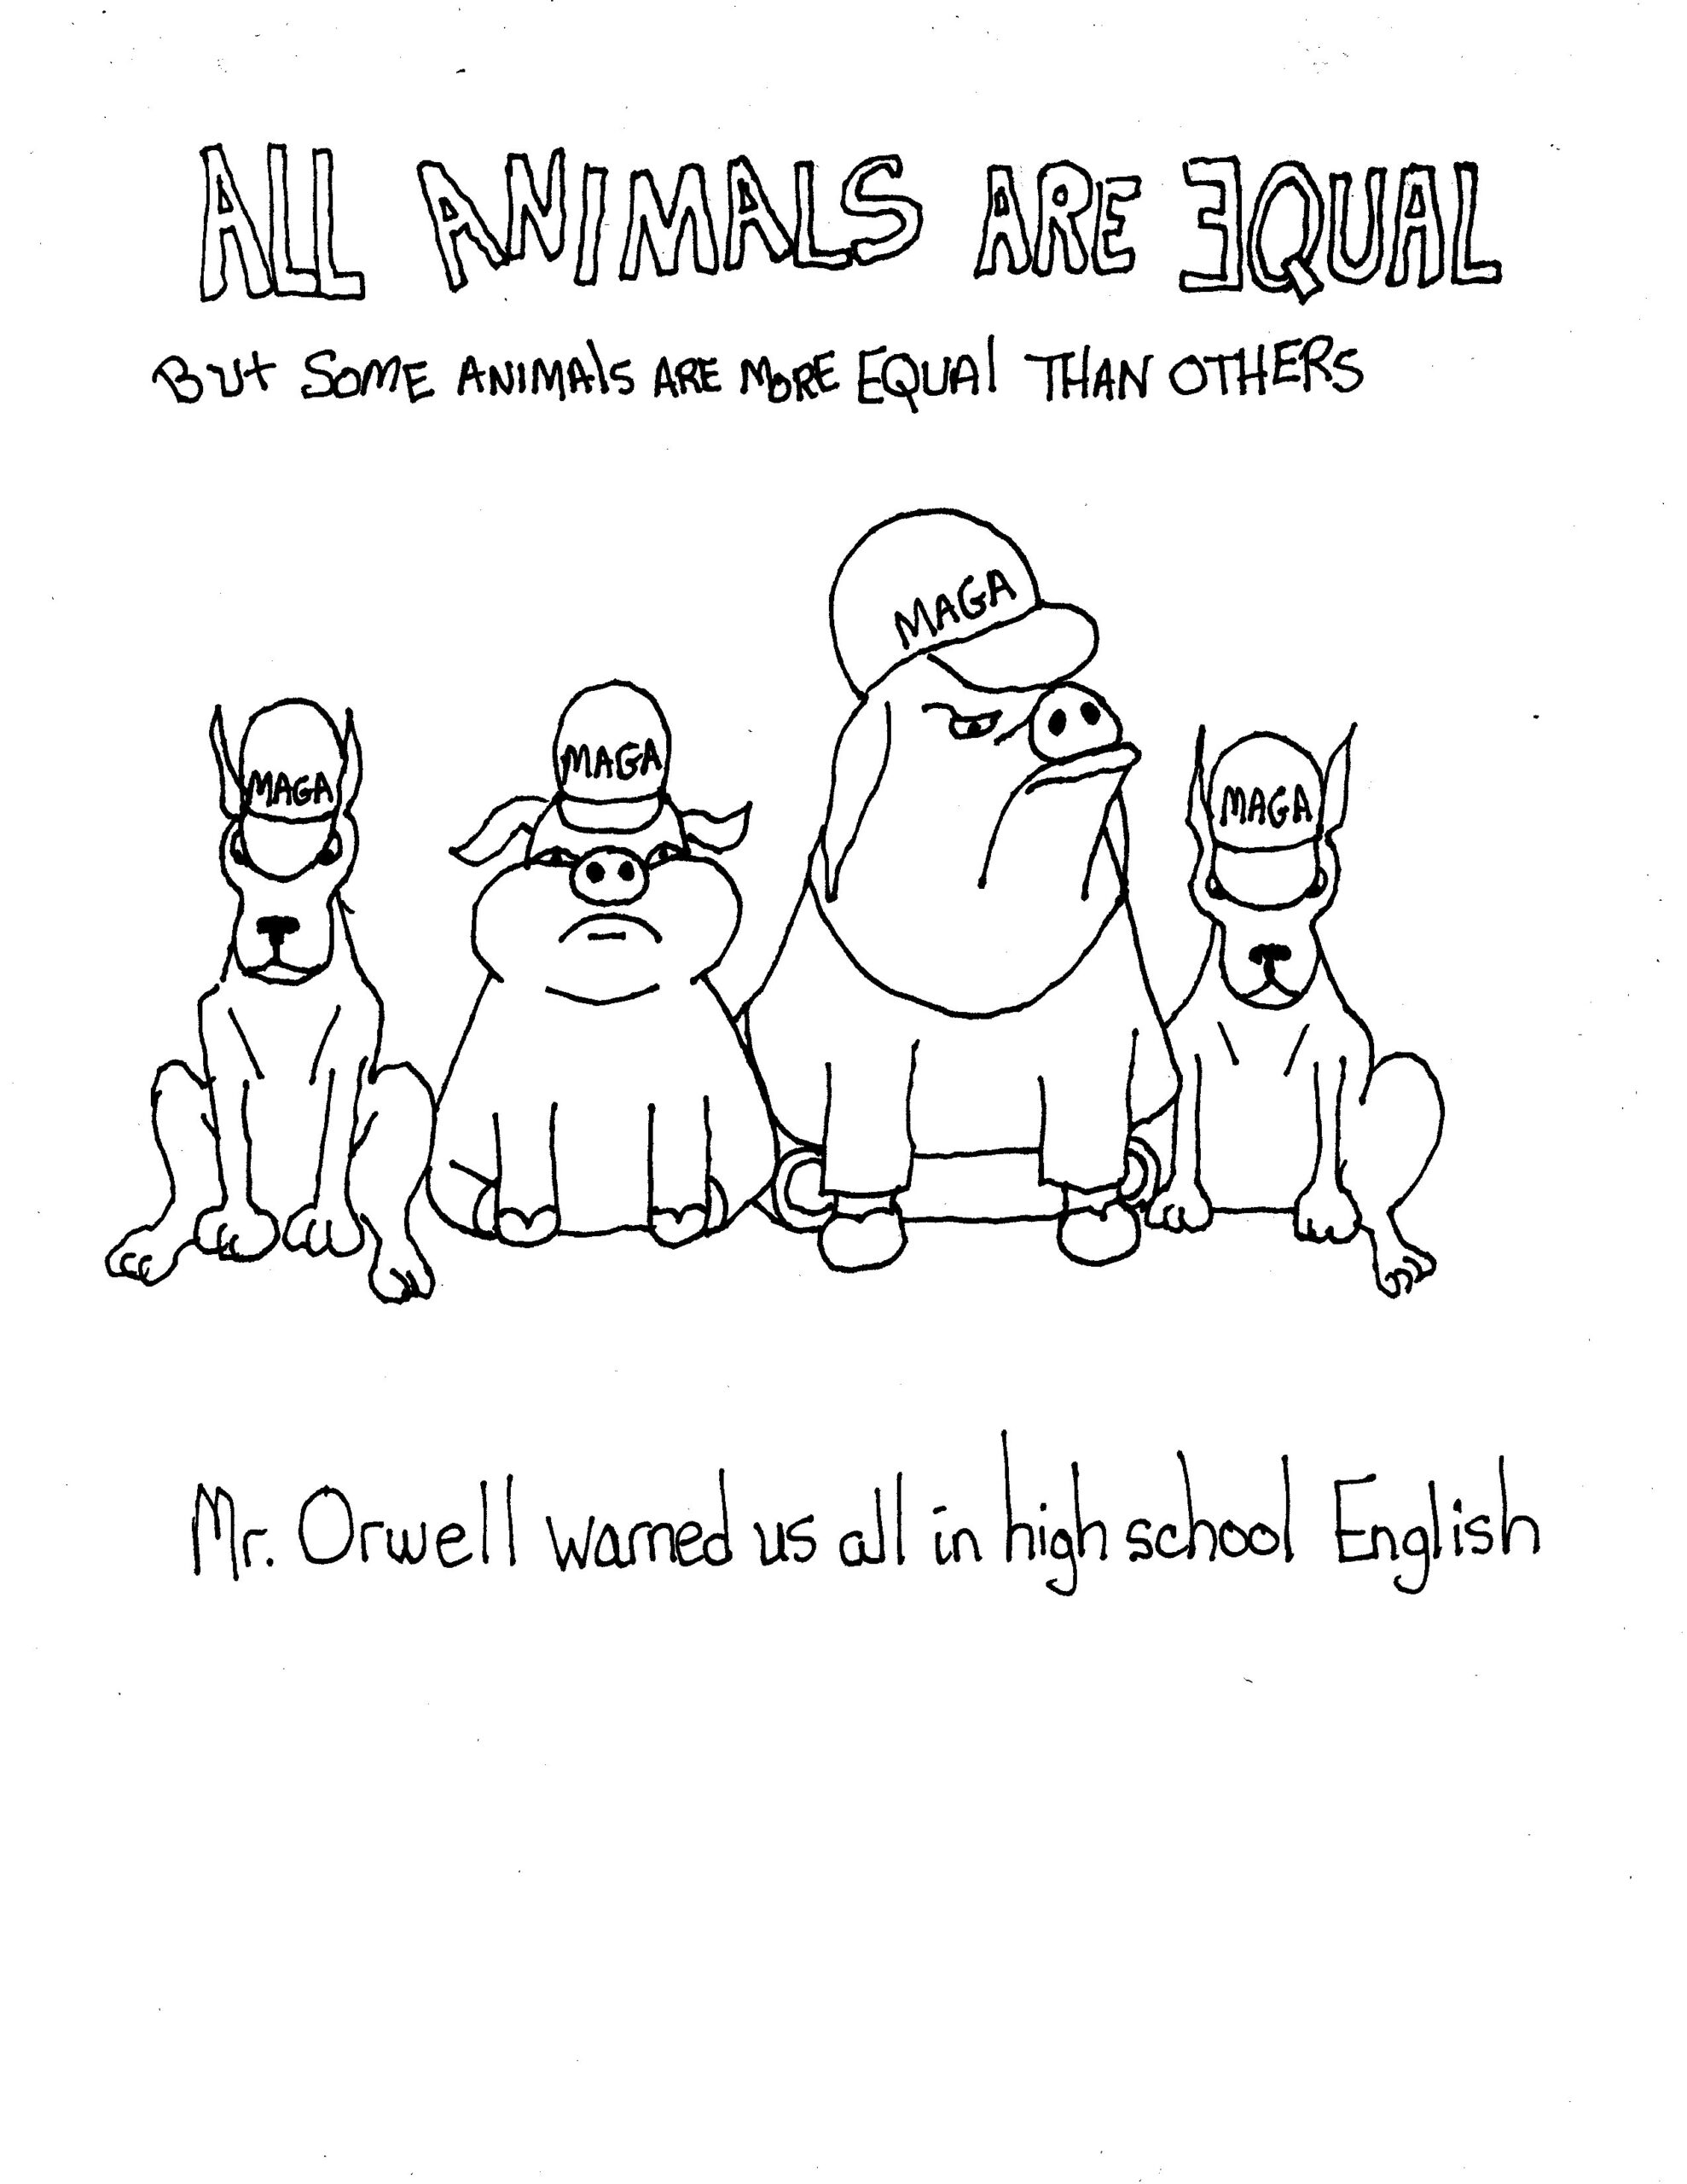 ALL ANIMALS ARE EQUAL
BUt SOME ANIMAlS ARE MORE EQUAl THAN OTHERS
MAGA
MAGA
MAGA
MAGA
Mr. Orwell warned us all in high school English